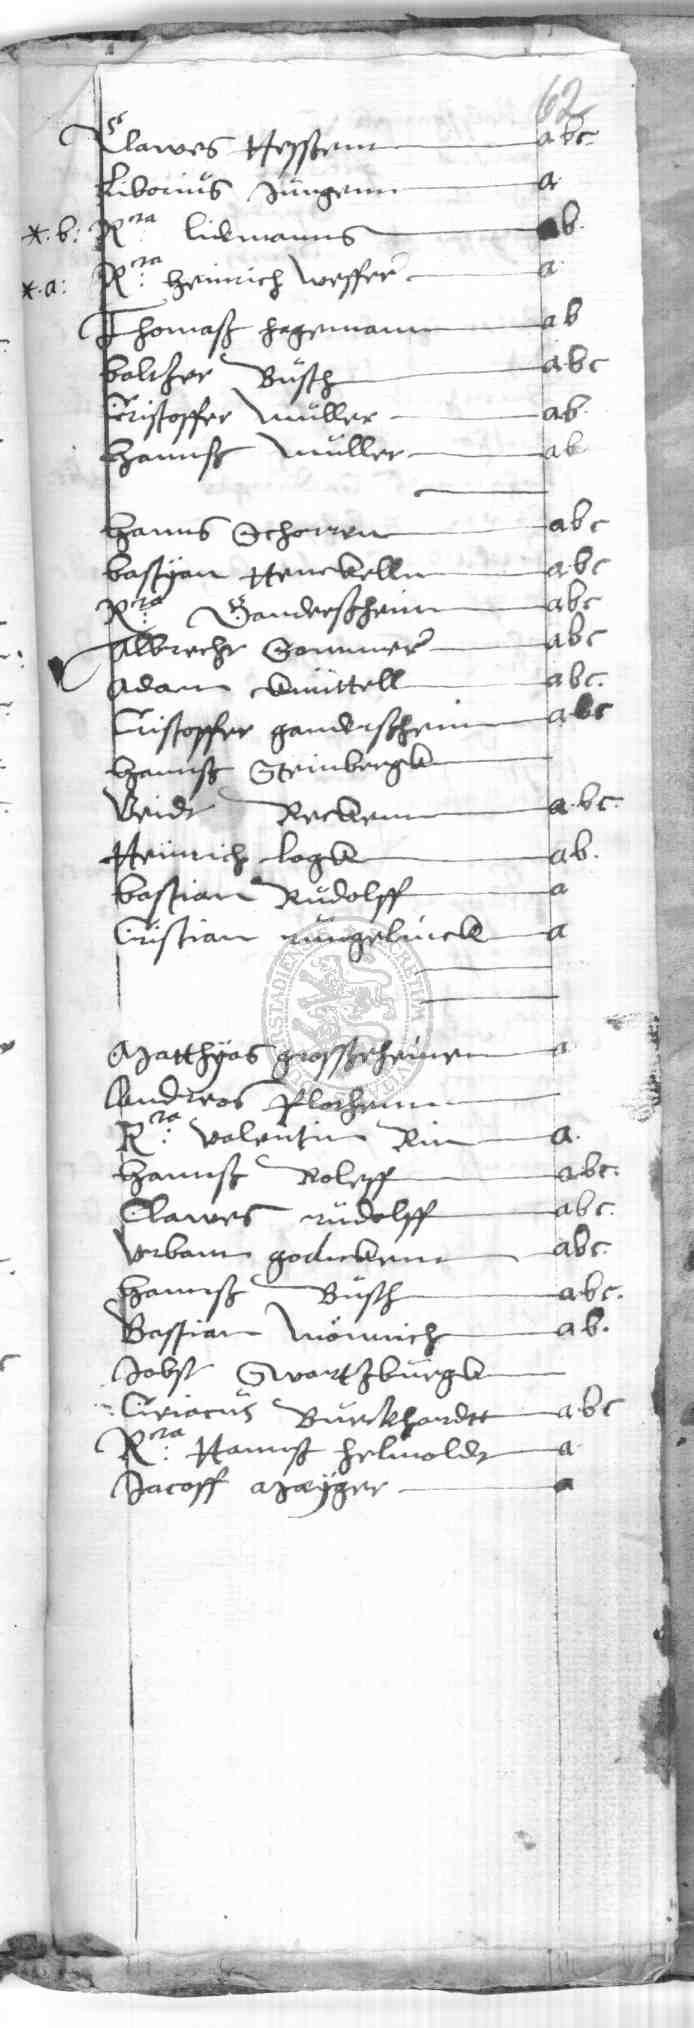 62
Clawes Heyssenn abc.
Liborius Jungenn a
*.b: R^ra lidemanns b.
*.a: R^ra Heinrich Weffer a
Thomaß hagemann ab
baltzer Büsch abc
Cristoffer Müller ab.
Hannß Müller ab
Hanns Schorren abc
bastyan Henckelln abc
R^ra Gandersheim abc
Albrecht Sommer abc
Adam knüttell abc.
Cristoffer gandersheim abc
Hannß Steinbergk
Veidt Reckenn a.bc.
Heinrich logk ab.
bastian Rudolff a
Cristian rüngelinck a
Matthyas großheinen a
Andreas Plothenn
R^ra valentin Rin a.
Hannß Roleff abc.
Clawes rudolff abc.
Urbann godickenn abc.
Hannß Büsch abc.
Bastian Mönnich ab.
Jobst Swartzburgk
Ciriacus Burckhardtt a.bc
R^ra Hannß helmoldt a
Jacoff Meyger a